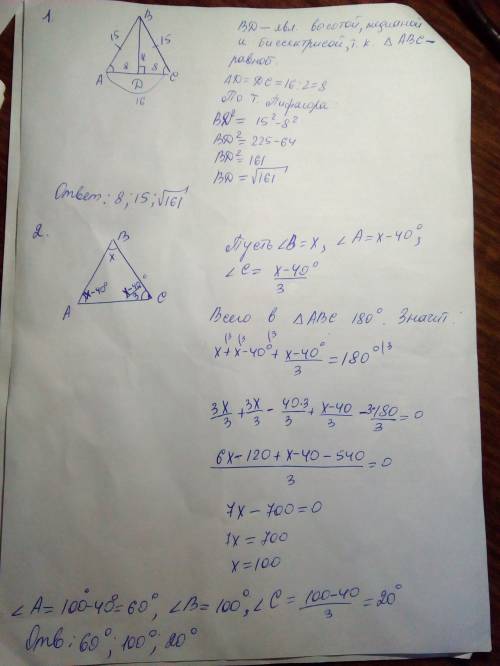 1.
B
15
15
A
8
8
C
D
16
BD – явл. высотой, медианой
и биссектрисой, т.к. △ABC –
равноб.
AD = DC = 16:2 = 8
По т. Пифагора:
BD² = 15² - 8²
BD² = 225 - 64
BD² = 161
BD = √161
Ответ: 8; 15; √161
2.
B
x
A
x-40°
x-40°/3
C
Пусть ∠B = x, ∠A = x-40°,
∠C = x-40°/3
Всего в △ABC 180°. Значит:
x + x - 40° + x-40°/3 = 180° |3
3x/3 + 3x/3 - 40·3/3 + x-40/3 - 3·180/3 = 0
6x - 120 + x - 40 - 540/3 = 0
7x - 700 = 0
7x = 700
x = 100
∠A = 100° - 40° = 60°, ∠B = 100°, ∠C = 100-40/3 = 20°
Отв: 60°; 100°; 20°